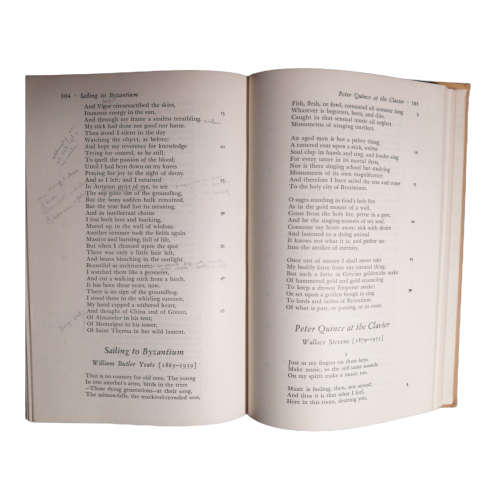 104 · Sailing to Byzantium
And Vigor unsanctified the skies,
Immense energy in the sun,
And through my frame a aimless trembling,
My stick had done no good nor harm.
Then stood I silent in the day
Watching the object, as before;
And kept my reverence for knowledge
Trying for control, to be still,
To quell the passion of the blood;
Until I had bent down on my knees
Praying for joy in the sight of decay.
And so I left; and I returned
In Autumn strict of eye, to see
The sap gone out of the groundhog,
But the bony sodden hulk remained.
But the year had lost its meaning,
And in intellectual chains
I lost both love and loathing,
Mured up in the wall of wisdom.
Another summer took the fields again
Massive and burning, full of life,
But when I chanced upon the spot
There was only a little hair left,
And bones bleaching in the sunlight
Beautiful as architecture;
I watched them like a geometer,
And cut a walking stick from a birch.
It has been three years, now.
There is no sign of the groundhog.
I stood there in the whirling summer,
My hand capped a withered heart,
And thought of China and of Greece,
Of Alexander in his tent;
Of Montaigne in his tower,
Of Saint Theresa in her wild lament.
Sailing to Byzantium
William Butler Yeats [1865–1939]
That is no country for old men. The young
In one another's arms, birds in the trees
—Those dying generations—at their song,
The salmon-falls, the mackerel-crowded seas,
Peter Quince at the Clavier · 105
Fish, flesh, or fowl, commend all summer long
Whatever is begotten, born, and dies.
Caught in that sensual music all neglect
Monuments of unaging intellect.
An aged man is but a paltry thing,
A tattered coat upon a stick, unless
Soul clap its hands and sing, and louder sing
For every tatter in its mortal dress,
Nor is there singing school but studying
Monuments of its own magnificence;
And therefore I have sailed the seas and come
To the holy city of Byzantium.
O sages standing in God's holy fire
As in the gold mosaic of a wall,
Come from the holy fire, perne in a gyre,
And be the singing-masters of my soul.
Consume my heart away; sick with desire
And fastened to a dying animal
It knows not what it is; and gather me
Into the artifice of eternity.
Once out of nature I shall never take
My bodily form from any natural thing,
But such a form as Grecian goldsmiths make
Of hammered gold and gold enameling
To keep a drowsy Emperor awake;
Or set upon a golden bough to sing
To lords and ladies of Byzantium
Of what is past, or passing, or to come.
Peter Quince at the Clavier
Wallace Stevens [1879–1955]
I
Just as my fingers on these keys
Make music, so the self-same sounds
On my spirit make a music too.
Music is feeling, then, not sound;
And thus it is that what I feel,
Here in this room, desiring you,